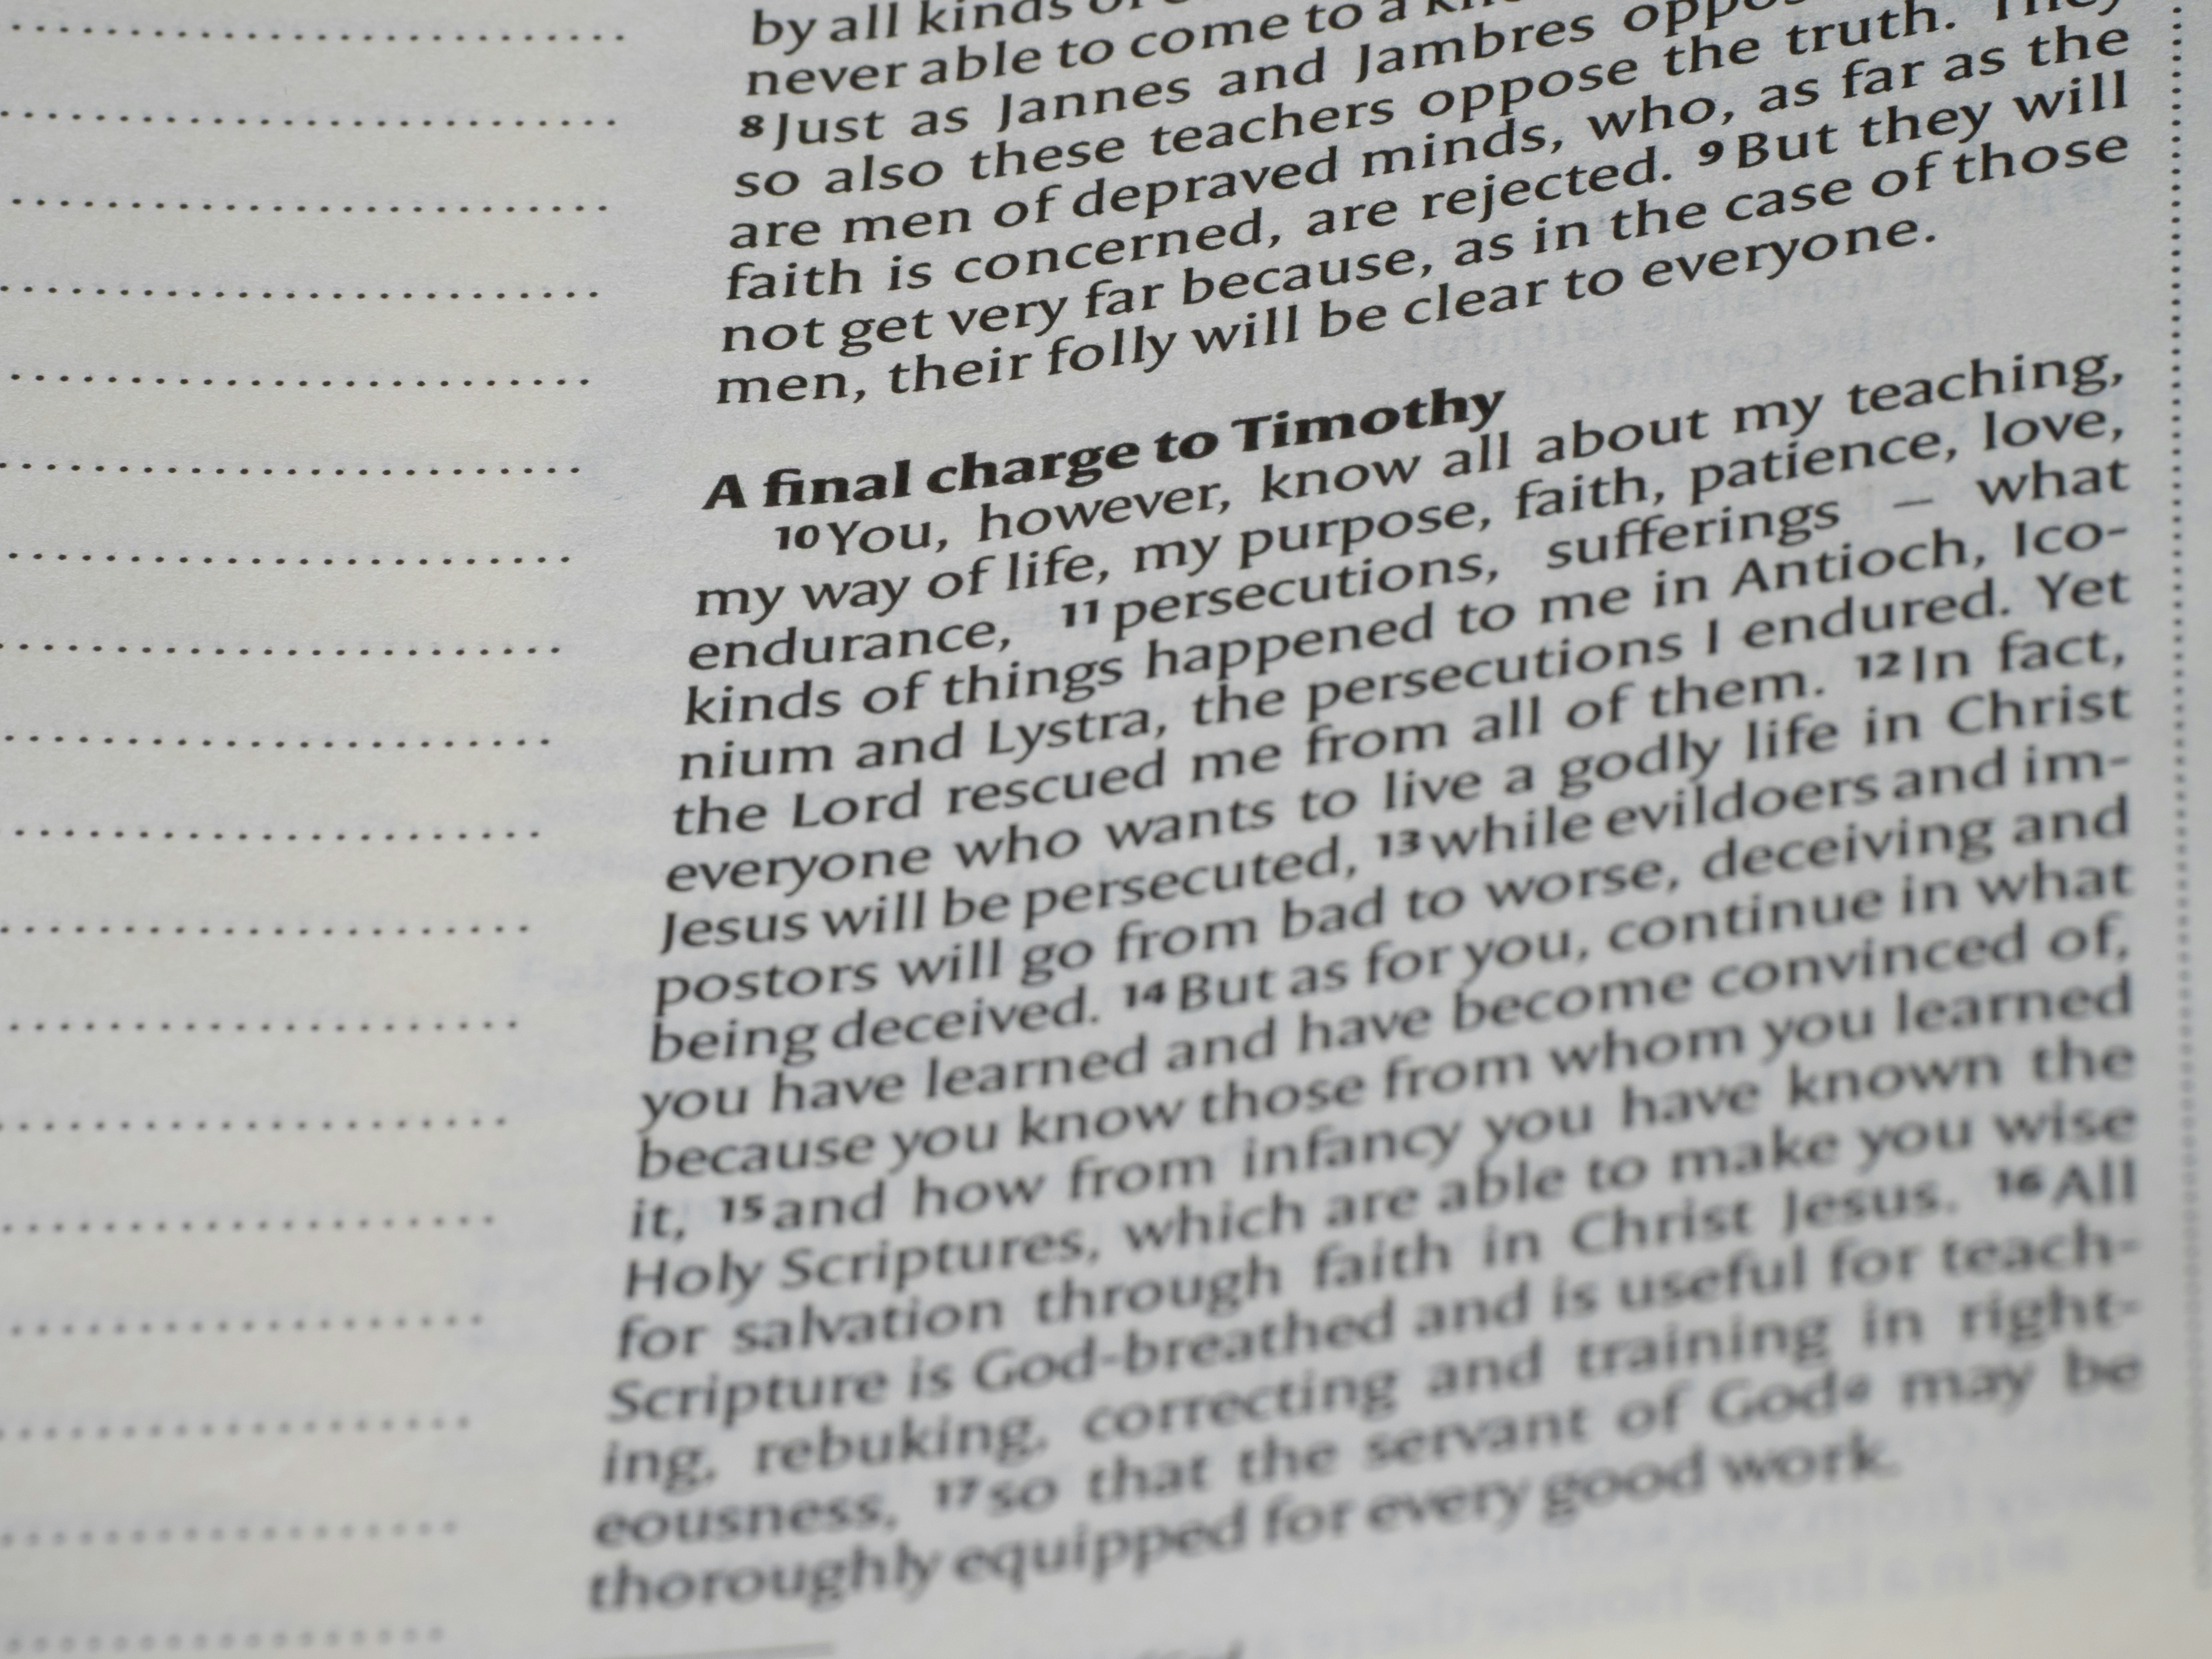 by all kinds
never able to come to a
8 Just as Jannes and Jambres
so also these teachers oppose the truth. They
are men of depraved minds, who, as far as the
faith is concerned, are rejected. 9 But they will
not get very far because, as in the case of those
men, their folly will be clear to everyone.
A final charge to Timothy
10 You, however, know all about my teaching,
my way of life, my purpose, faith, patience, love,
endurance, 11 persecutions, sufferings – what
kinds of things happened to me in Antioch, Ico-
nium and Lystra, the persecutions I endured. Yet
the Lord rescued me from all of them. 12 In fact,
everyone who wants to live a godly life in Christ
Jesus will be persecuted, 13 while evildoers and im-
postors will go from bad to worse, deceiving and
being deceived. 14 But as for you, continue in what
you have learned and have become convinced of,
because you know those from whom you learned
it, 15 and how from infancy you have known the
Holy Scriptures, which are able to make you wise
for salvation through faith in Christ Jesus. 16 All
Scripture is God-breathed and is useful for teach-
ing, rebuking, correcting and training in right-
eousness, 17 so that the servant of God a may be
thoroughly equipped for every good work.